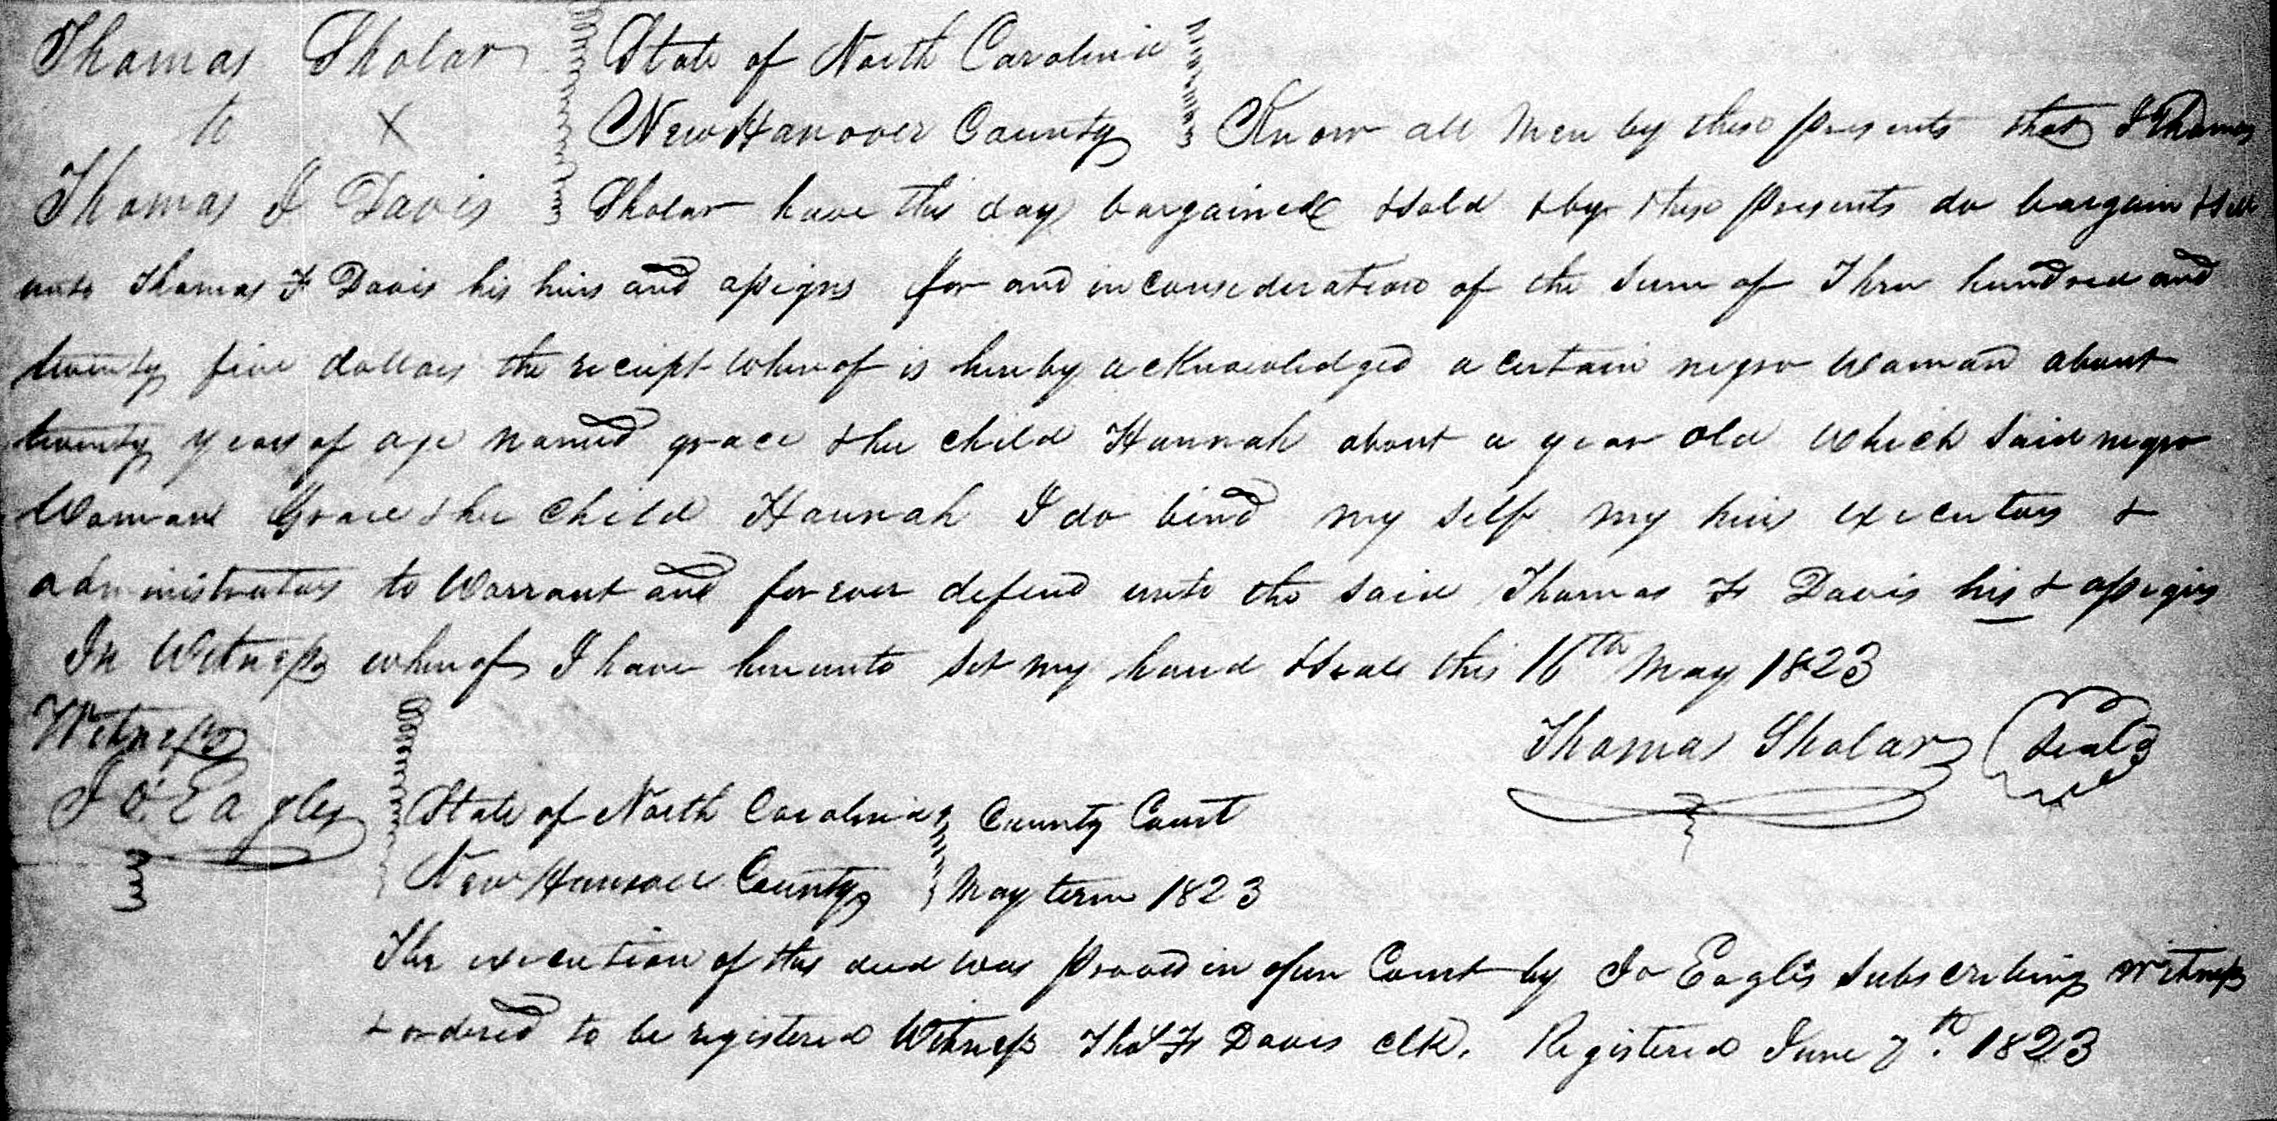 Thomas Sholar State of North Carolina
to X New Hanover County Know all Men by these presents that I Thomas
Thomas F Davis Sholar have this day bargained & sold & by these presents do bargain & sell
unto Thomas F Davis his heirs and assigns for and in consideration of the sum of Three hundred and
twenty five dollars the receipt whereof is hereby acknowledged a certain negro woman about
twenty years of age named grace & her child Hannah about a year old which said negro
woman Grace & her child Hannah I do bind my self my heirs executors &
administrators to warrant and forever defend unto the said Thomas F Davis his & assigns
In Witness whereof I have hereunto set my hand & seal this 16th May 1823
Witness Thomas Sholar seal
J. Eagles State of North Carolina County Court
New Hanover County May term 1823
The execution of this deed was proved in open Court by Jo Eagles subscribing witness
& ordered to be registered Witness Thos F Davis Clk. Registered June 7th. 1823